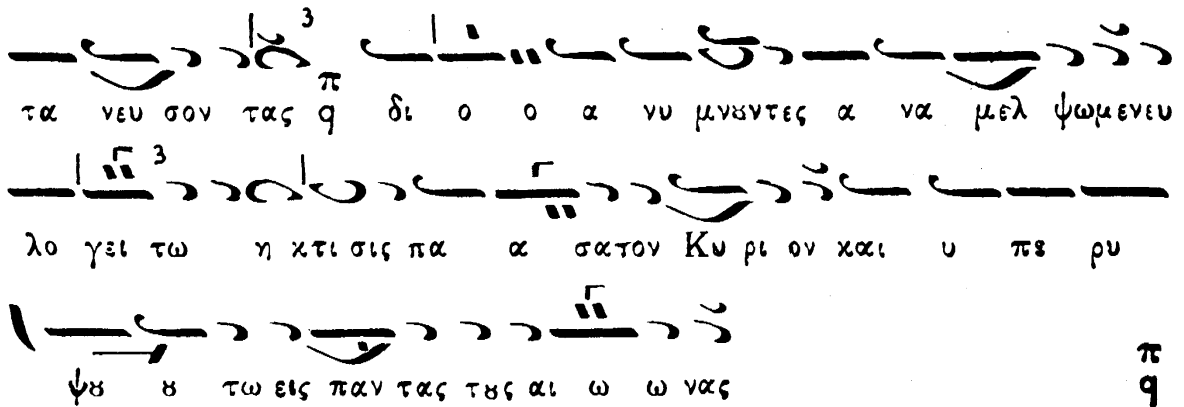 τα νευ σον τας q̣ δι ο ο α νυ μνȣντες α να μελ ψωμενευ
λο γει τω η κτι σις πα α σατον Κυ ρι ον και υ πε ρυ
ψȣ ȣ τω εις παν τας τȣς αι ω ω νας π q